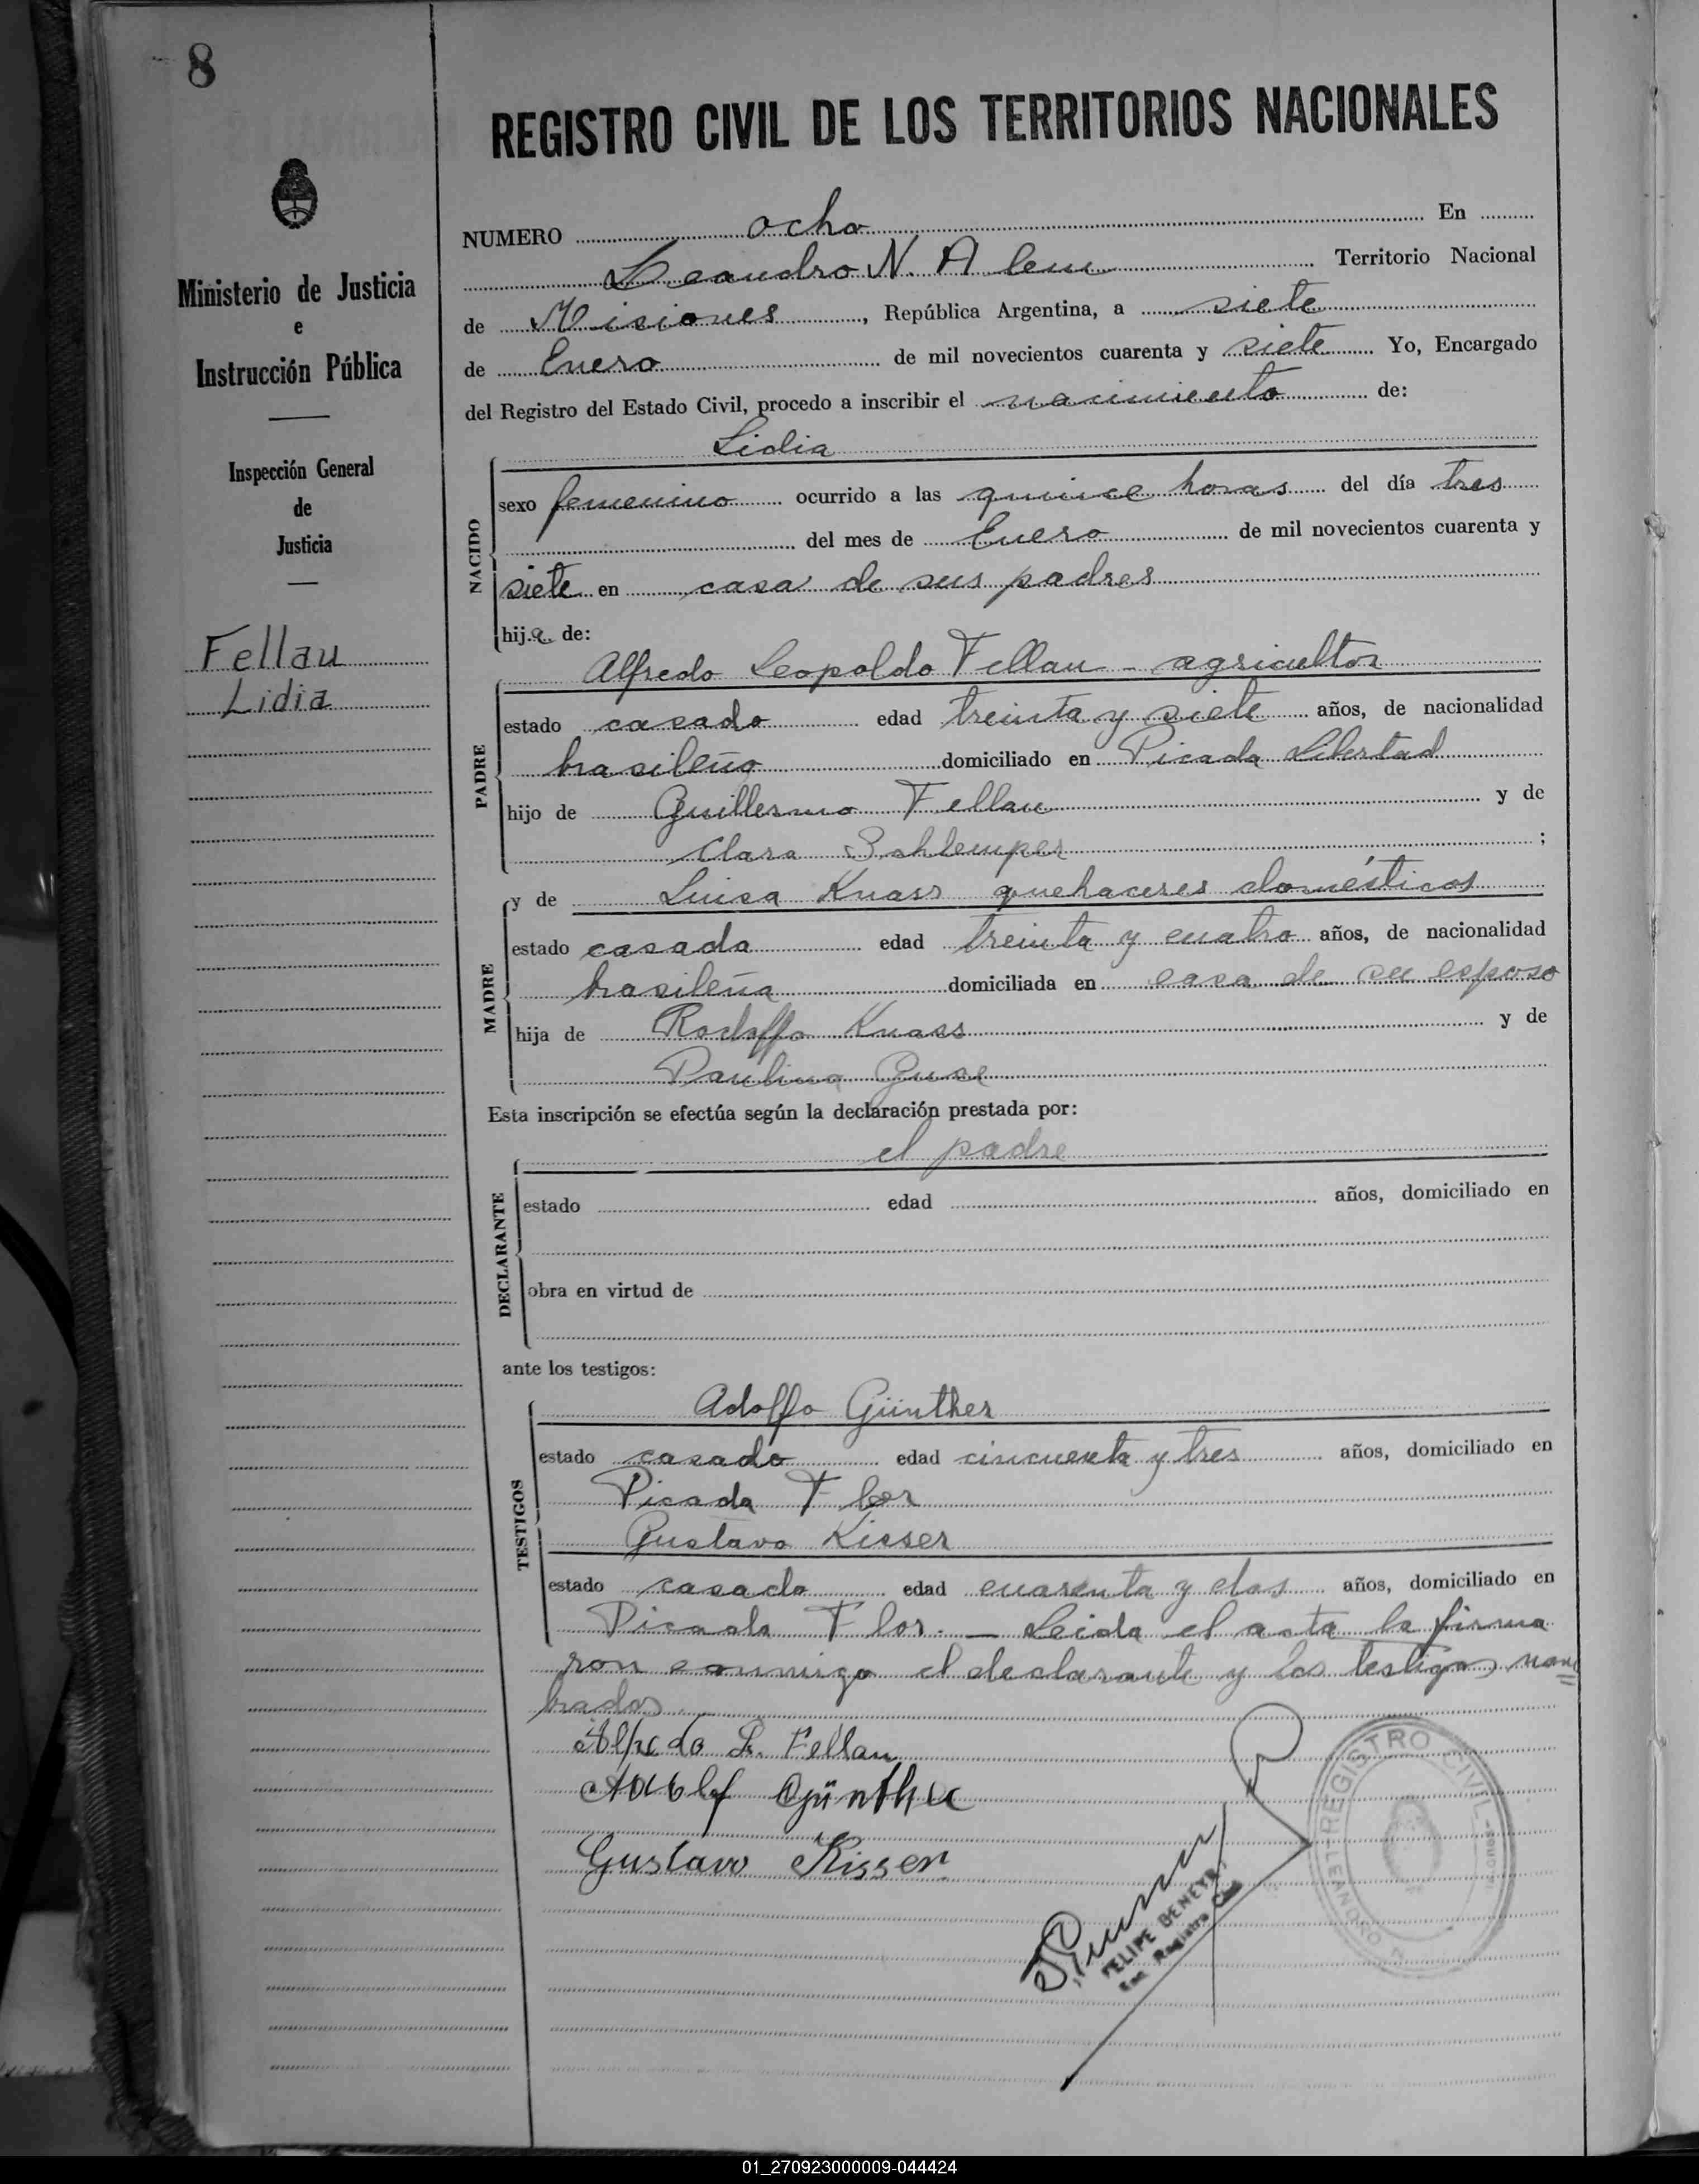 8
REGISTRO CIVIL DE LOS TERRITORIOS NACIONALES
Ministerio de Justicia
e
Instrucción Pública
Inspección General
de
Justicia
Fellau
Lidia
NUMERO ocho En
Leandro N. Alem Territorio Nacional
de Misiones, República Argentina, a siete
de Enero de mil novecientos cuarenta y siete Yo, Encargado
del Registro del Estado Civil, procedo a inscribir el nacimiento de:
NACIDO
Lidia
sexo femenino ocurrido a las quince horas del día tres
del mes de Enero de mil novecientos cuarenta y
siete en casa de sus padres
hija de:
PADRE
Alfredo Leopoldo Fellau - agricultor
estado casado edad treinta y siete años, de nacionalidad
brasileño domiciliado en Picada Libertad
hijo de Guillermo Fellau y de
Clara Sohlemper ;
MADRE
y de Luisa Knass quehaceres domésticos
estado casada edad treinta y cuatro años, de nacionalidad
brasileña domiciliada en casa de su esposo
hija de Rodolfo Knass y de
Paulina Guse
Esta inscripción se efectúa según la declaración prestada por:
DECLARANTE
el padre
estado edad años, domiciliado en
obra en virtud de
ante los testigos:
TESTIGOS
Adolfo Günther
estado casado edad cincuenta y tres años, domiciliado en
Picada Flor
Gustavo Kisser
estado casado edad cuarenta y dos años, domiciliado en
Picada Flor. — Leida el acta la firma
ron conmigo el declarante y los testigos nom=
brados
Alfredo L. Fellau
Adolf Günther
Gustavo Kisser
FELIPE BENEYR
Enc Registro Civil
REGISTRO CIVIL
LEANDRO N.
01_270923000009-044424